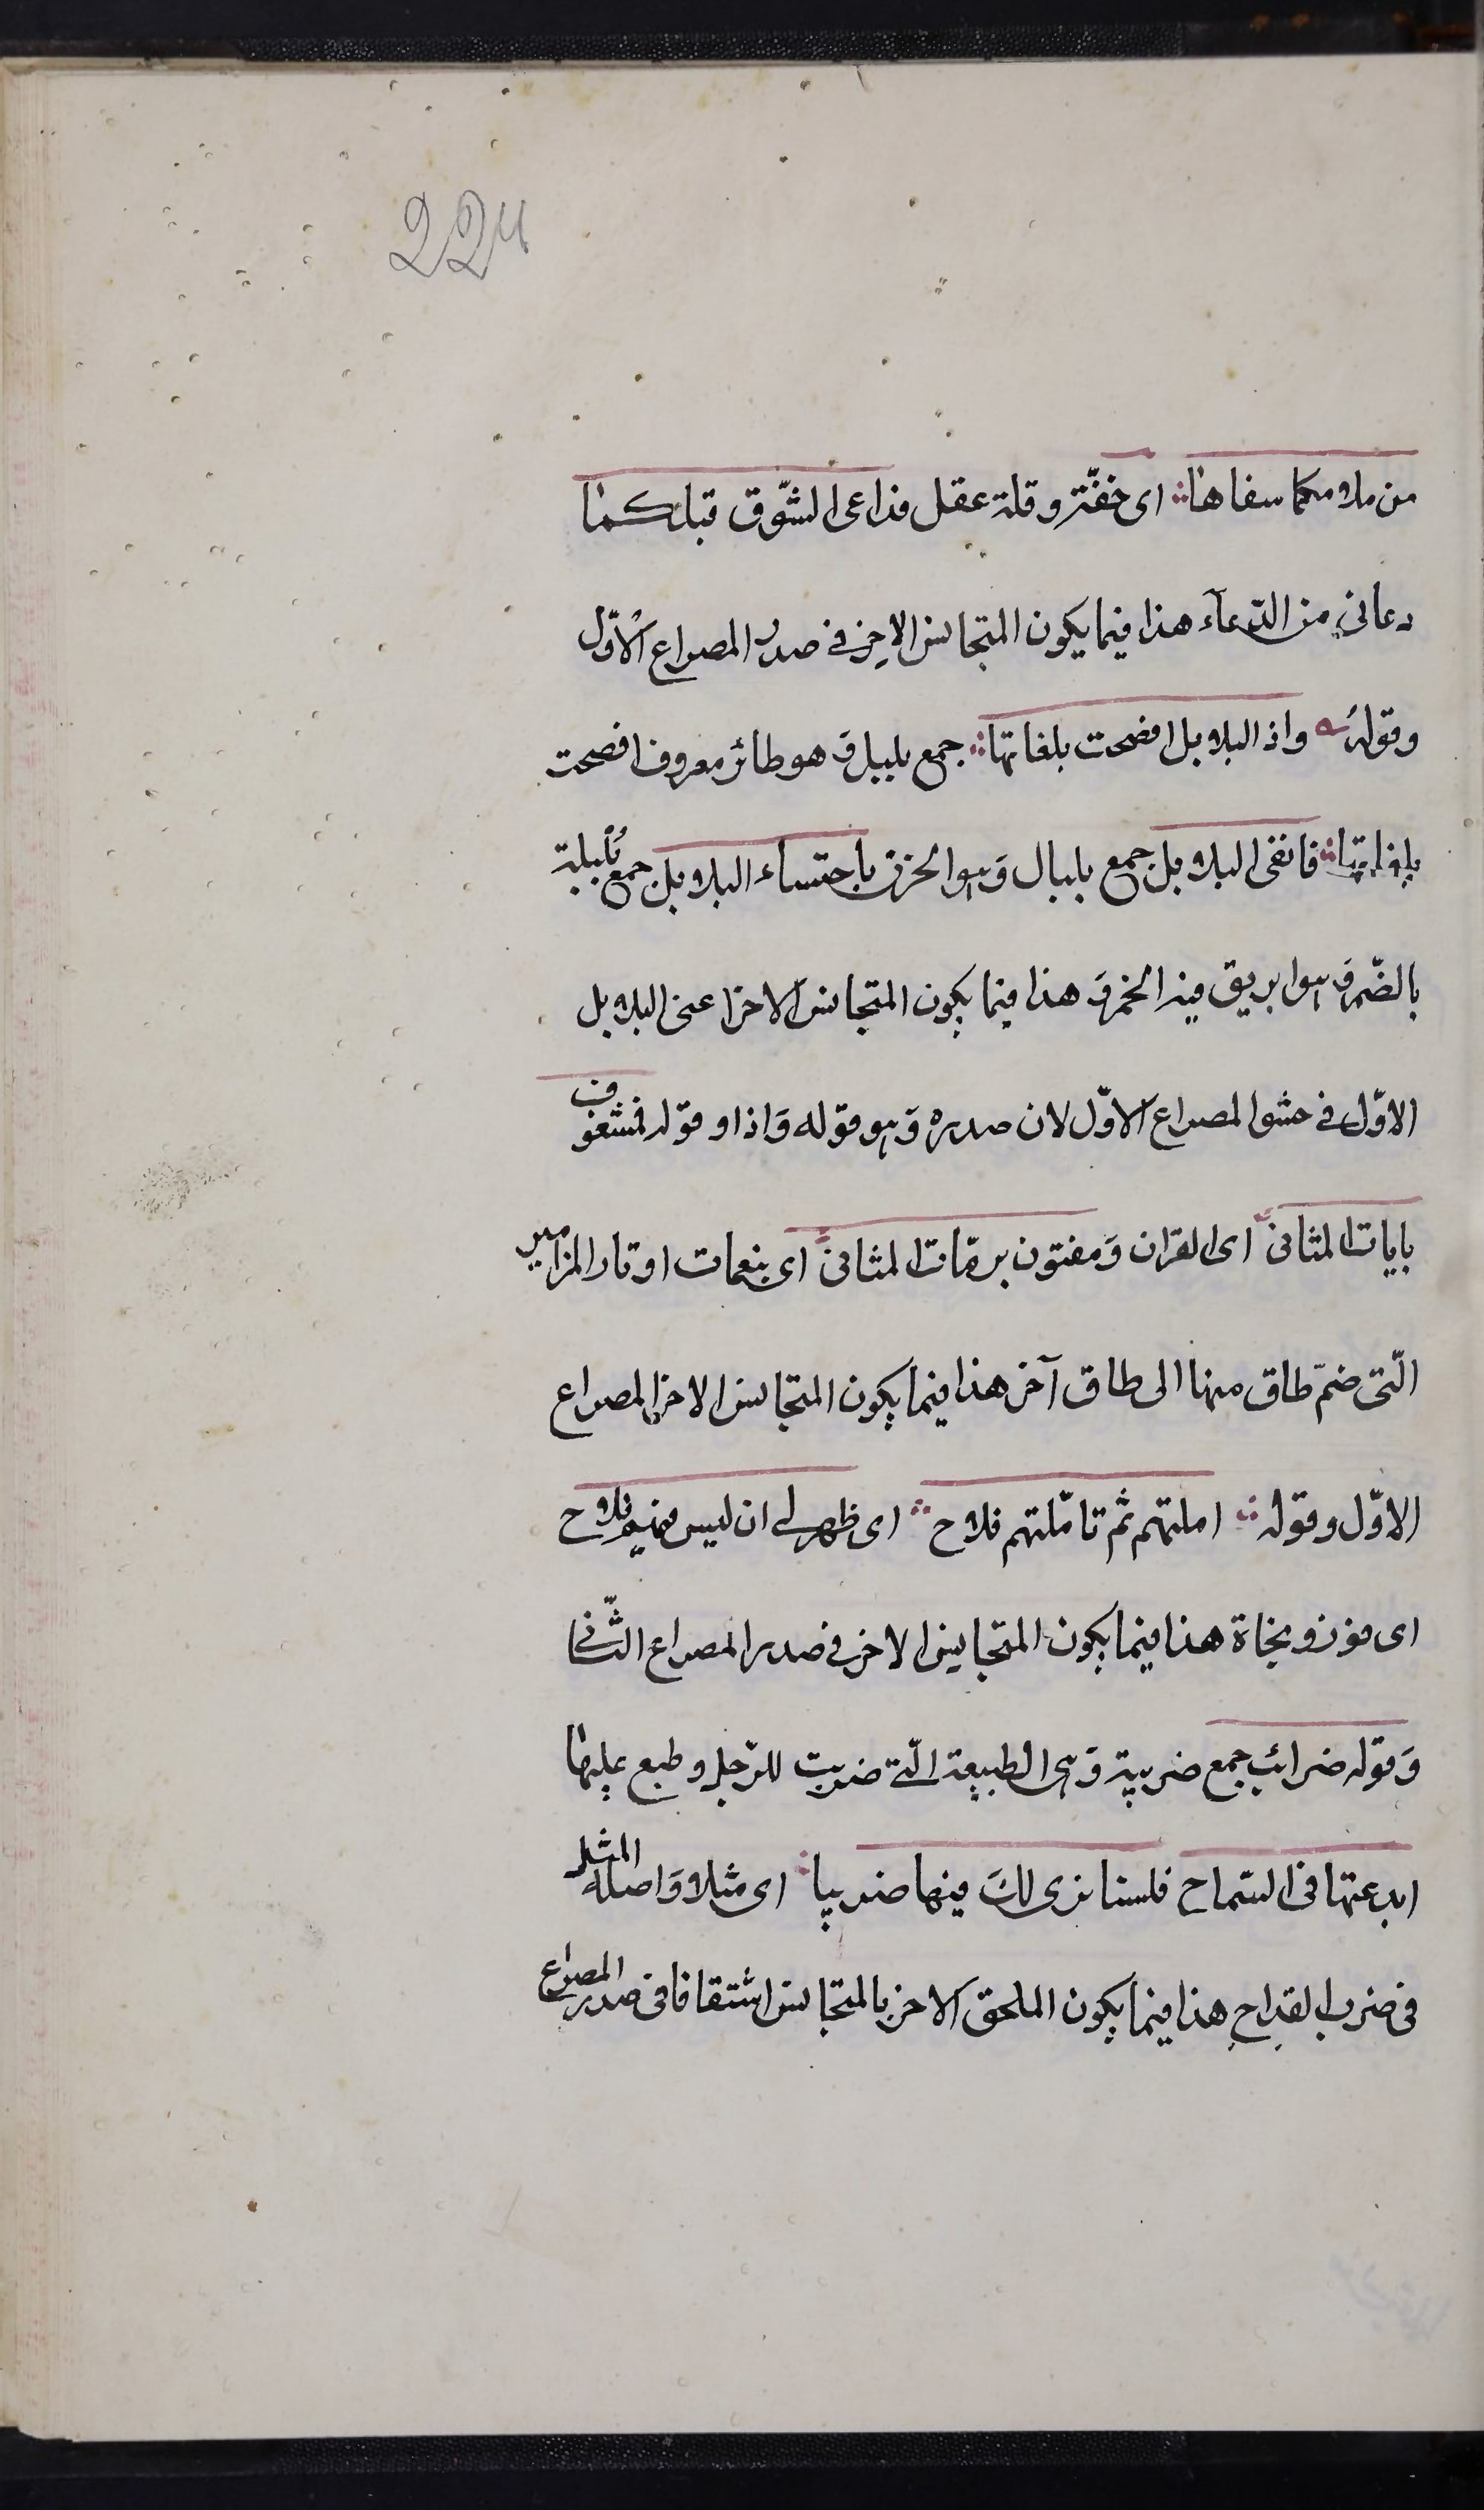 224
من ملامكما سفاها ای خفّة وقلة عقل فداعی الشّوق قبلكما
دعانی من الدّعآء هذا فیما یكون المتجانس الاخر فی صدر المصراع الاوّل
وقوله واذ البلابل افصحت بلغاتها جمع بلبل وَ هو طائر معروف افصحت
بلغاتها فانفی البلابل جمع بلبال وَ هو الحزن باحتساء البلابل جمع بُلبلة
بالضّم وَ هو ابریق فیه الخمر وَ هذا فیما یكون المتجانس الاخر اعنی البلابل
الاوّل فی حشو المصراع الاوّل لان صدره وَ هو قوله وَاذا و قوله فمشغوف
بایات المثانی ای القران وَمفتون برنّات المثانی ای بنغمات اوتار المزامیر
الّتی ضمّ طاق منها الی طاق آخر هذا فیما یكون المتجانس الاخر المصراع
الاوّل وقوله املتهم ثم تامّلتهم فلاح ای ظهر لی ان لیس فیهم فلاح
ای فوز و نجاة هذا فیما یكون المتجانس الاخر فی صدر المصراع الثّانی
وَقوله ضرائب جمع ضریبة وَ هی الطبیعة الّتی ضربت للرّجل و طبع علیها
ابدعتها فی السّماح فلسنا نری لكَ فیها ضریبا ای مثلا وَاصله المثل
فی ضرب القداحِ هذا فیما یكون الملحق الاخر بالمتجانس اشتقاقا فی صدر المصراع